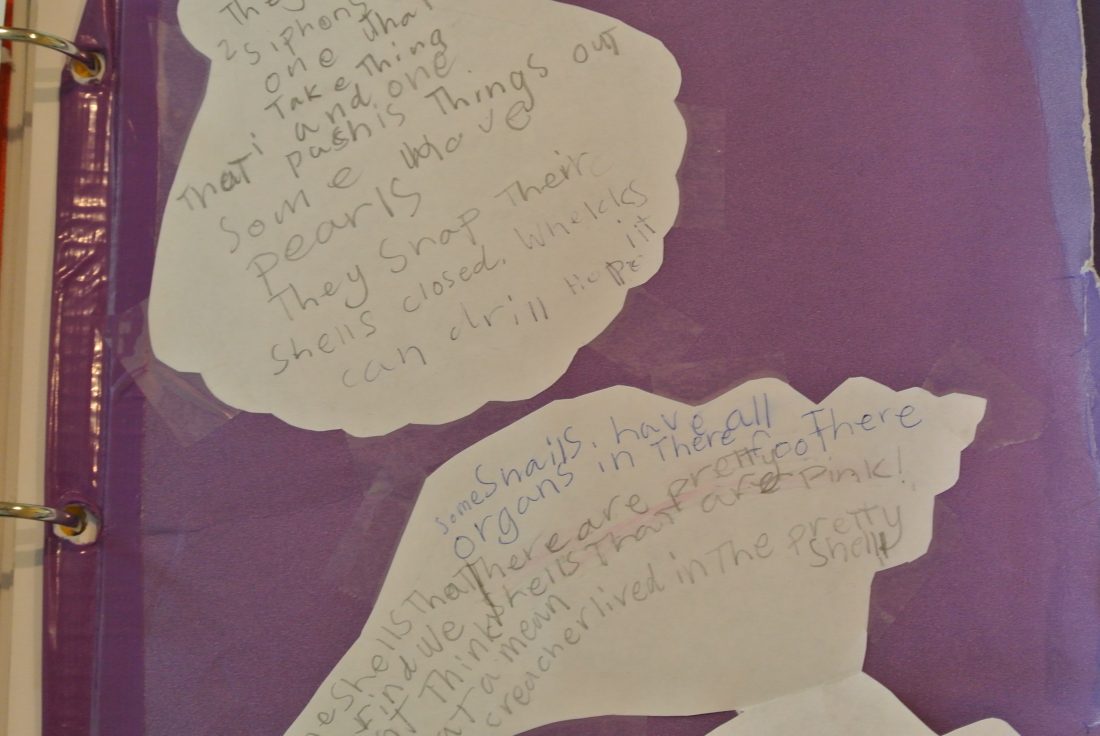 They
2 siphons
one that
Take Thing
and one
That pushis Things out
Some have
pearls
They Snap Their
shells closed. Whelcks
can drill
some Snails. have all
organs in There foot There
There are pretty
shells That are Pink!
Shells That
Find We
Think
a mean
creacher lived in The pretty
Shell